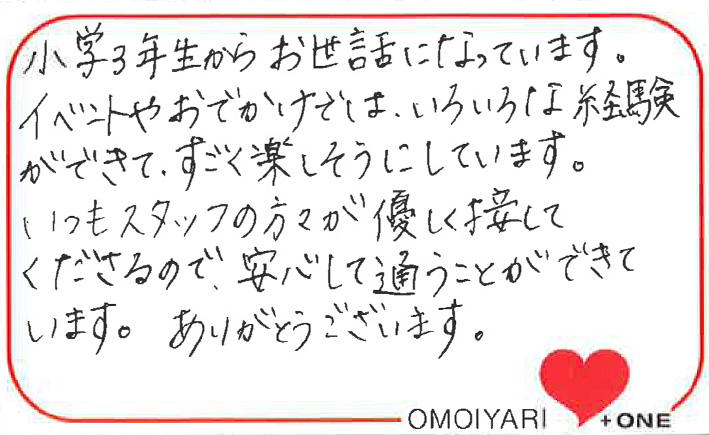 小学3年生からお世話になっています。
イベントやおでかけでは、いろいろな経験
ができて、すごく楽しそうにしています。
いつもスタッフの方々が優しく接して
くださるので、安心して通うことができて
います。ありがとうございます。
OMOIYARI +ONE